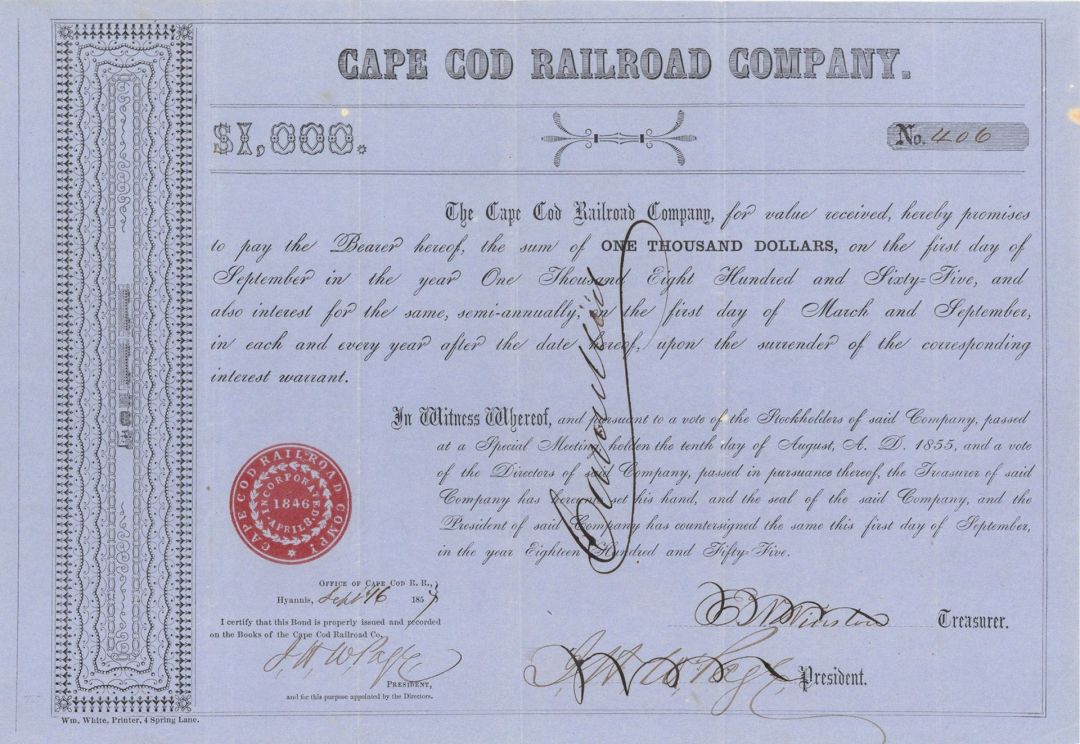 CAPE COD RAILROAD COMPANY.
$1,000.
No. 406
The Cape Cod Railroad Company, for value received, hereby promises
to pay the Bearer hereof, the sum of ONE THOUSAND DOLLARS, on the first day of
September in the year One Thousand Eight Hundred and Sixty-Five, and
also interest for the same, semi-annually, on the first day of March and September,
in each and every year after the date hereof, upon the surrender of the corresponding
interest warrant.
In Witness Whereof, and pursuant to a vote of the Stockholders of said Company, passed
at a Special Meeting holden the tenth day of August, A. D. 1855, and a vote
of the Directors of said Company, passed in pursuance thereof, the Treasurer of said
Company has hereunto set his hand, and the seal of the said Company, and the
President of said Company has countersigned the same this first day of September,
in the year Eighteen Hundred and Fifty-Five.
CAPE COD RAILROAD COMPY.
INCORPORATED
1846
APRIL 8.
OFFICE OF CAPE COD R. R.,
Hyannis, Sept 16 1857
I certify that this Bond is properly issued and recorded
on the Books of the Cape Cod Railroad Co.
PRESIDENT,
and for this purpose appointed by the Directors.
Treasurer.
President.
Wm. White, Printer, 4 Spring Lane.